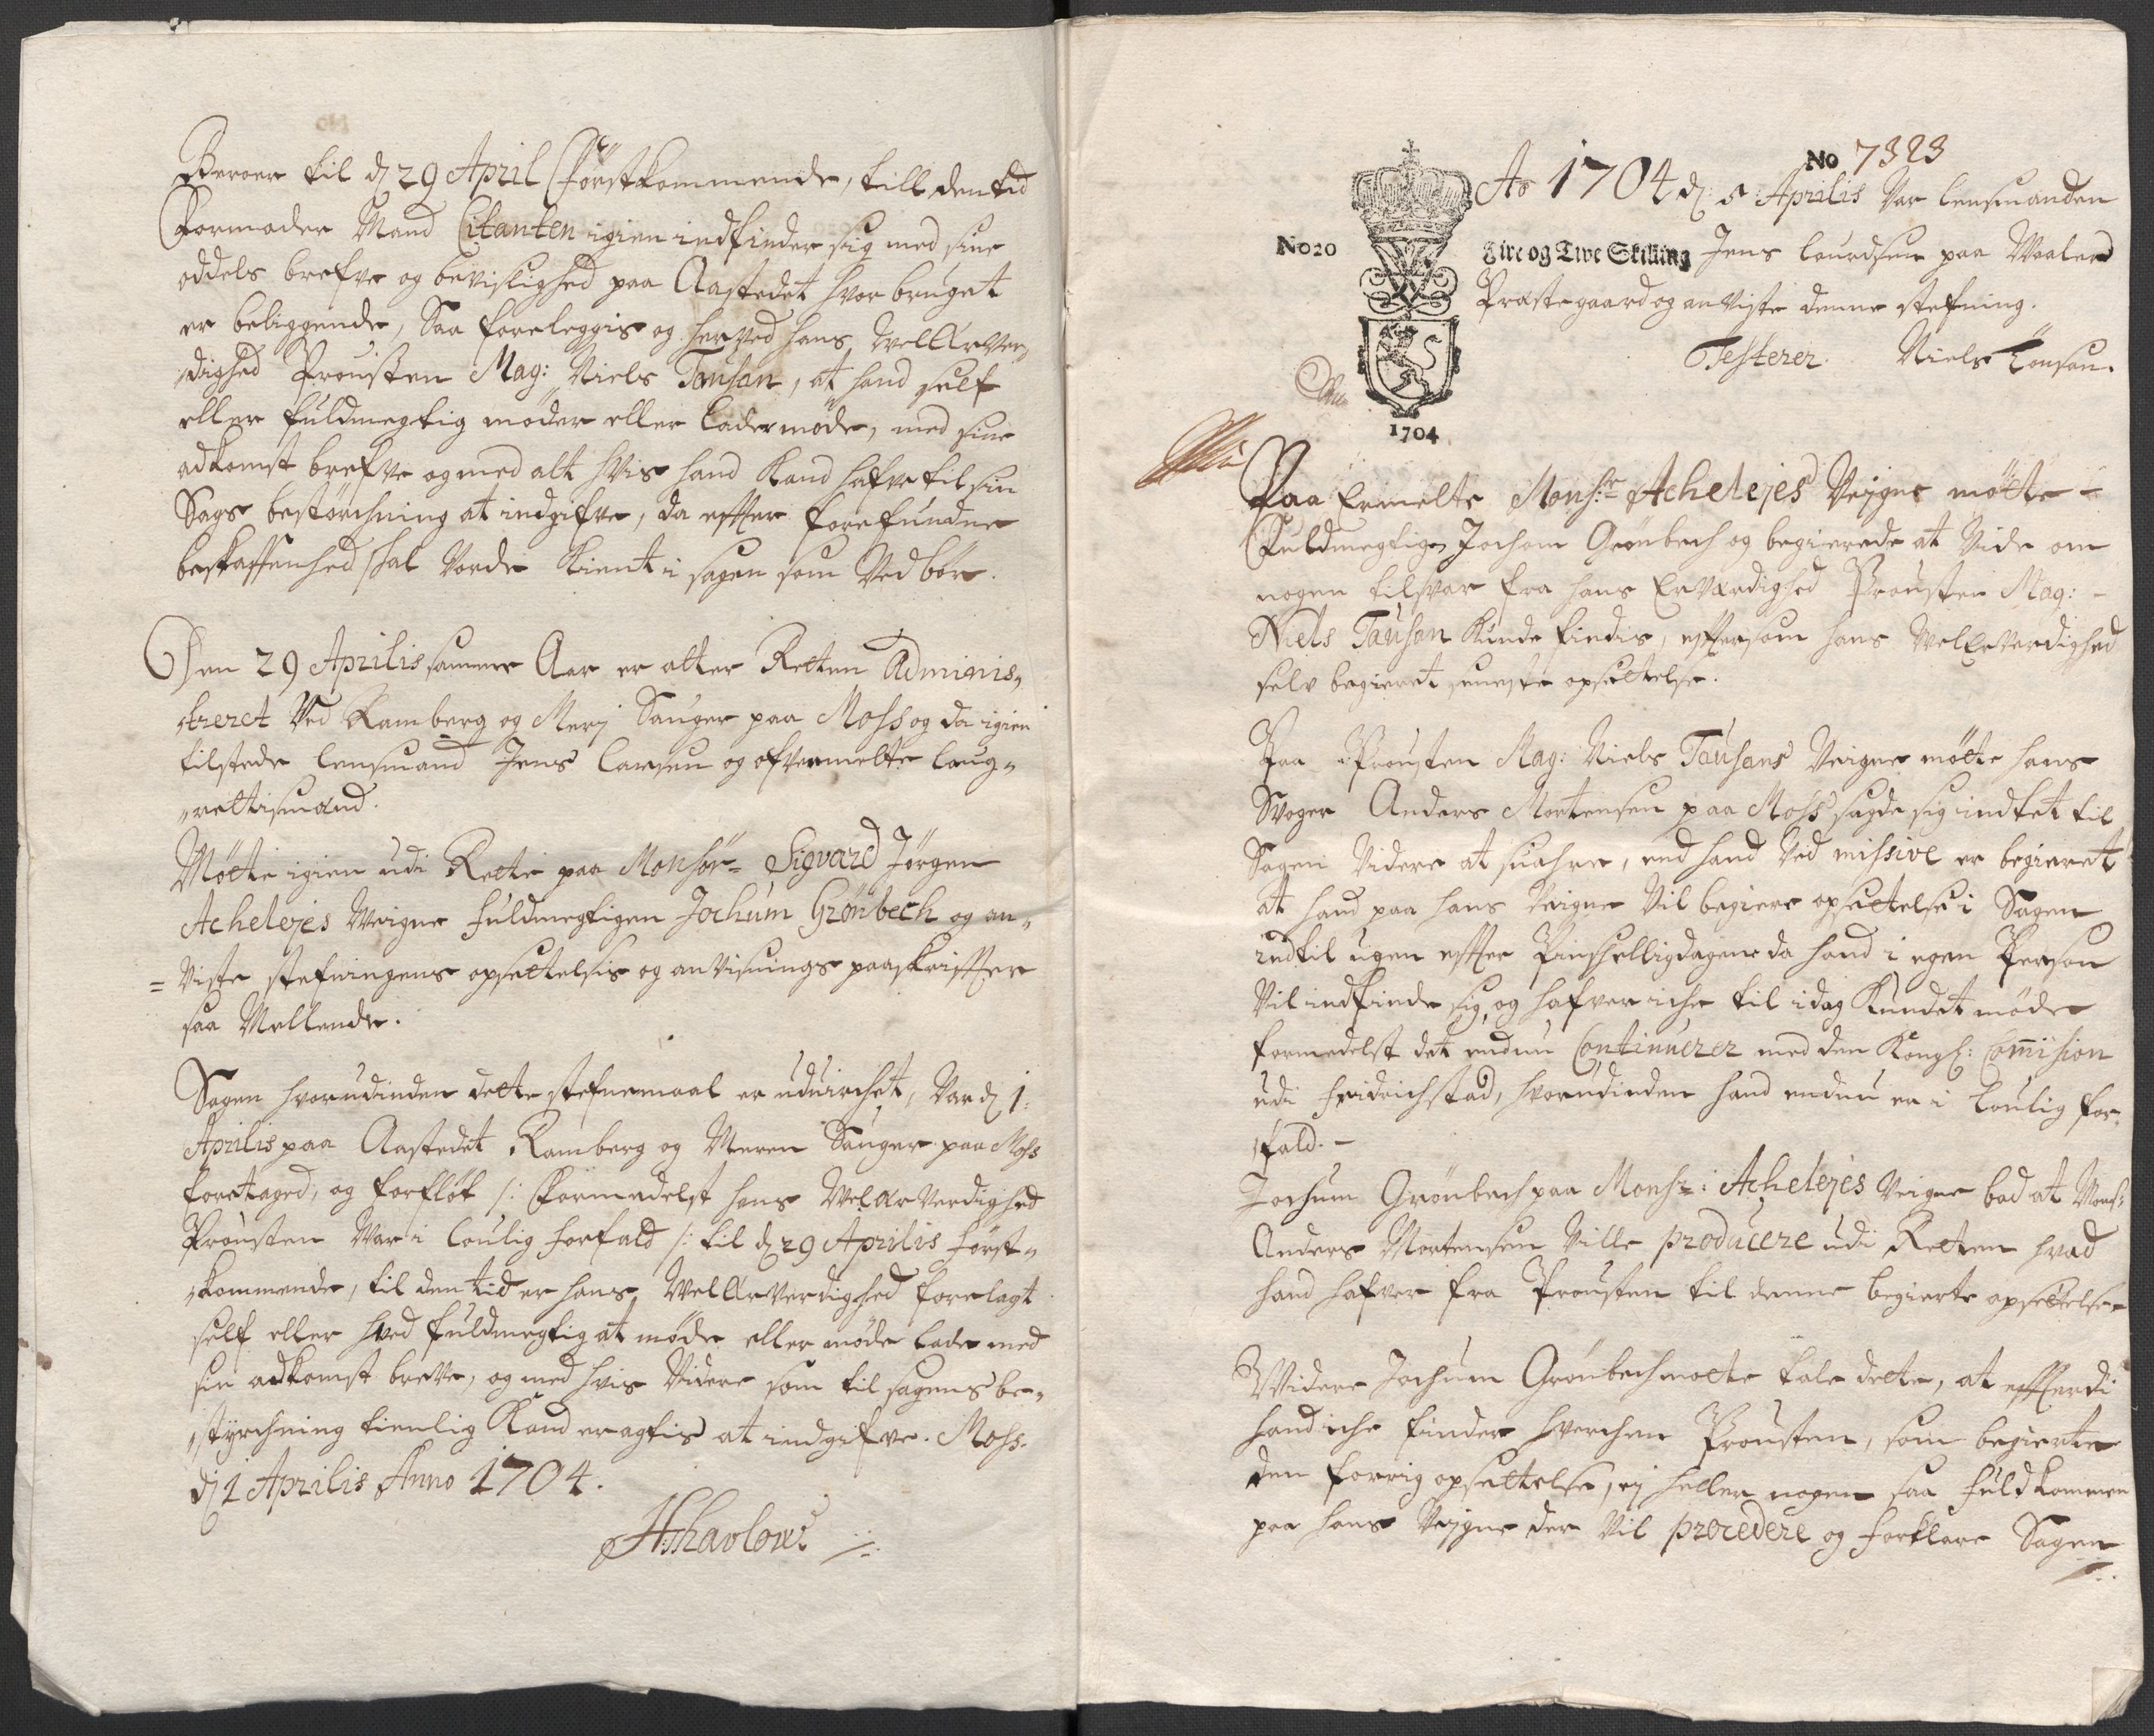 Beroer til d 29 April Førstkommende, till den tid
Formoder Mand Citanten igien indfinder sig med sine
oddels brefve og bevislighed paa Aastedet hvor bruget
er beliggende, Saa foreleggis og herved hans WelErver
dighed Prousten Mag: Niels Tausan, at hand self
eller fuldmegtig møder eller lader møde, med sine
adkomst brefve og med alt hvis hand kand hafve til sin
Sags bestørchning at indgifve, da effter forefundne
beskaffenhed skal vorde kient i sagen som ved bør.
Den 29 Aprilis samme Aar er atter Retten Adminis„
streret Ved Kamberg og Merj Sauger paa Moss og da igien
tilstede lensmand Jens Larsen og ofvermelte laug„
„rettismænd.
Møtte igien udi Rette paa Monsør Sigvard Jørgen
Achelejes Weigne fuldmegtigen Jochum Grønbech og an„
= Viste stefningens opsettelsis og anvisnings paaskriffter
saa Mellende.
Sagen hvorudinden dette stefnemaal er uduirchet, Var d 1:
Aprilis paa Aastedet Kamberg og Meren Sauger paa Moss
foretaged, og forfløt /: Formedelst hans WelærVerdighed
Prousten War i loulig forfald /: til d 29 Aprilis først„
„kommende, til den tid er hans WelærVerdighed forelagt
self eller hved fuldmegtig at møde eller møde lade med
sin adkomst breve, og med hvis Videre som til sagens be„
„styrchning tienlig Kand eragtis at indgifve. Moss.
dj 1 Aprilis Anno 1704.
No 7323
Ao 1704 d: 5 Aprilis Var lensmanden
No 20
Fire og Tive Skilling Jens laurdsen paa Waaler
Præstegaard og anviste denne stefning.
Testerer Niels Tønsen.
1704
Paa Ermelte Monsr Achelejes Veigne møtte –
Fuldmegtigen Jochom Grønbech og begierede at Vide om
nogen tilsvar fra hans ErVærdighed Prousten Mag: –
Niels Tausan kunde findis, effter som hans WelErverdighed
selv begieret seneste opsettelse.
Paa Prousten Mag: Niels Tausans Veigne møtte hans
Svoger Anders Mortensen paa Moss sagde sig indtet til
Sagen Videre at suahre, end hand ved missive er begieret
at hand paa hans Veigne Vil begiere opsettelse i Sagen
indtil ugen effter Pinshelligdagene da hand i egen Person
Vil indfinde sig, og hafver iche til idag Kundet møde
formedelst det endnu Continuerer med den Kongl: Comision
udi Fridrichstad, hvorudinden hand endnu er i loulig for„
„fald. –
Jochum Grønbech paa Monsr: Achelejes Veigne bad at Mons:
Anders Mortensen Ville producere udi Retten hvad
hand hafver fra Prousten til denne begierte opsettelse –
Widere Jochum Grønbech motte tale dette, at effterdi
hand iche finder hverchen Prousten, som begierte
den forrig opsettelse, ej heller nogen saa fuldkommen
paa hans Vejgne der Vil procedere og forklare Sagen